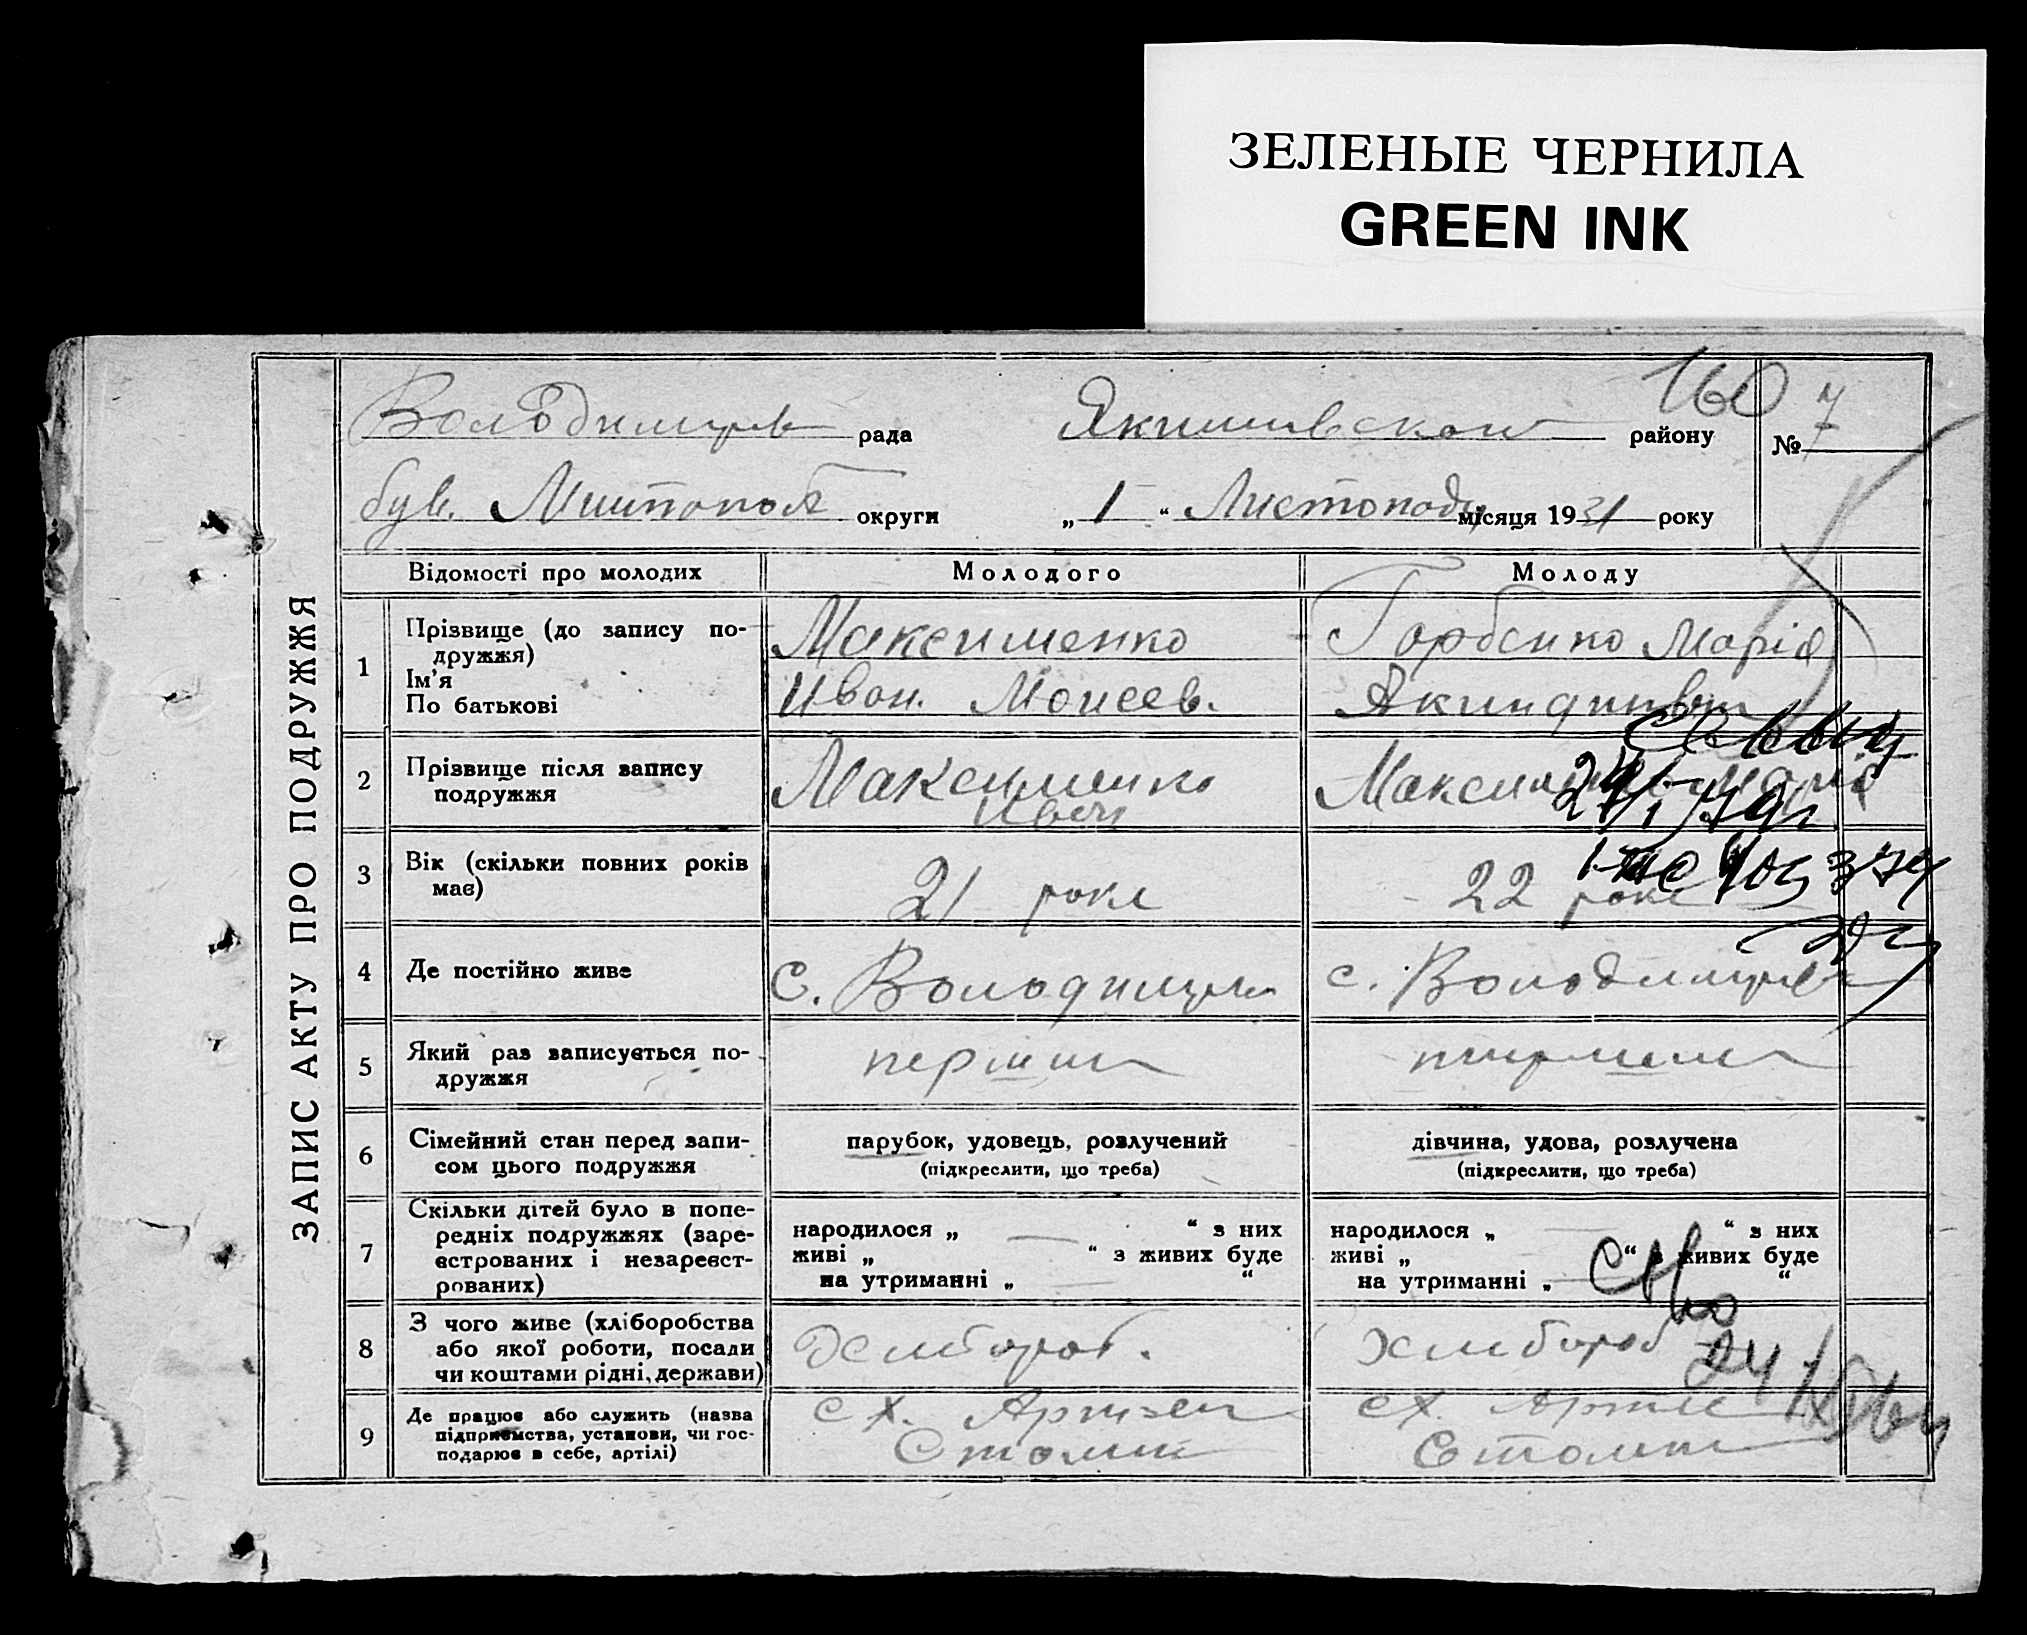 ЗЕЛЕНЫЕ ЧЕРНИЛА
GREEN INK
160
Володимирів рада Якимівскон району № 7
був. Милитопол округи „ 1 “ Листопаду місяця 1931 року
ЗАПИС АКТУ ПРО ПОДРУЖЖЯ
Відомості про молодих Молодого Молоду
1 Прізвище (до запису по-
дружжя)
Ім'я
По батькові
Максименко
Иван. Моисеев.
Горбенко Марія
Акиндинівн
2 Прізвище після запису
подружжя
Максименко
Иван
Максименко Марія
24/I
3 Вік (скільки повних років
має)
21 роки
22 роки
4 Де постійно живе
с. Володимирів
с. Володимирів
5 Який раз записується по-
дружжя
перший
перший
6 Сімейний стан перед запи-
сом цього подружжя
парубок, удовець, розлучений
(підкреслити, що треба)
дівчина, удова, розлучена
(підкреслити, що треба)
7 Скільки дітей було в попе-
редніх подружжях (заре-
єстрованих і незареєст-
рованих)
народилося „ — “ з них
живі „ “ з живих буде
на утриманні „ — “
народилося „ — “ з них
живі „ “ з живих буде
на утриманні „ — “
8 З чого живе (хліборобства
або якої роботи, посади
чи коштами рідні, держави)
Хлибороб.
Хлибороб
24
9 Де працює або служить (назва
підприємства, установи, чи гос-
подарює в себе, артілі)
с х. Артіл
Сталин
с х. Артіл
Сталин